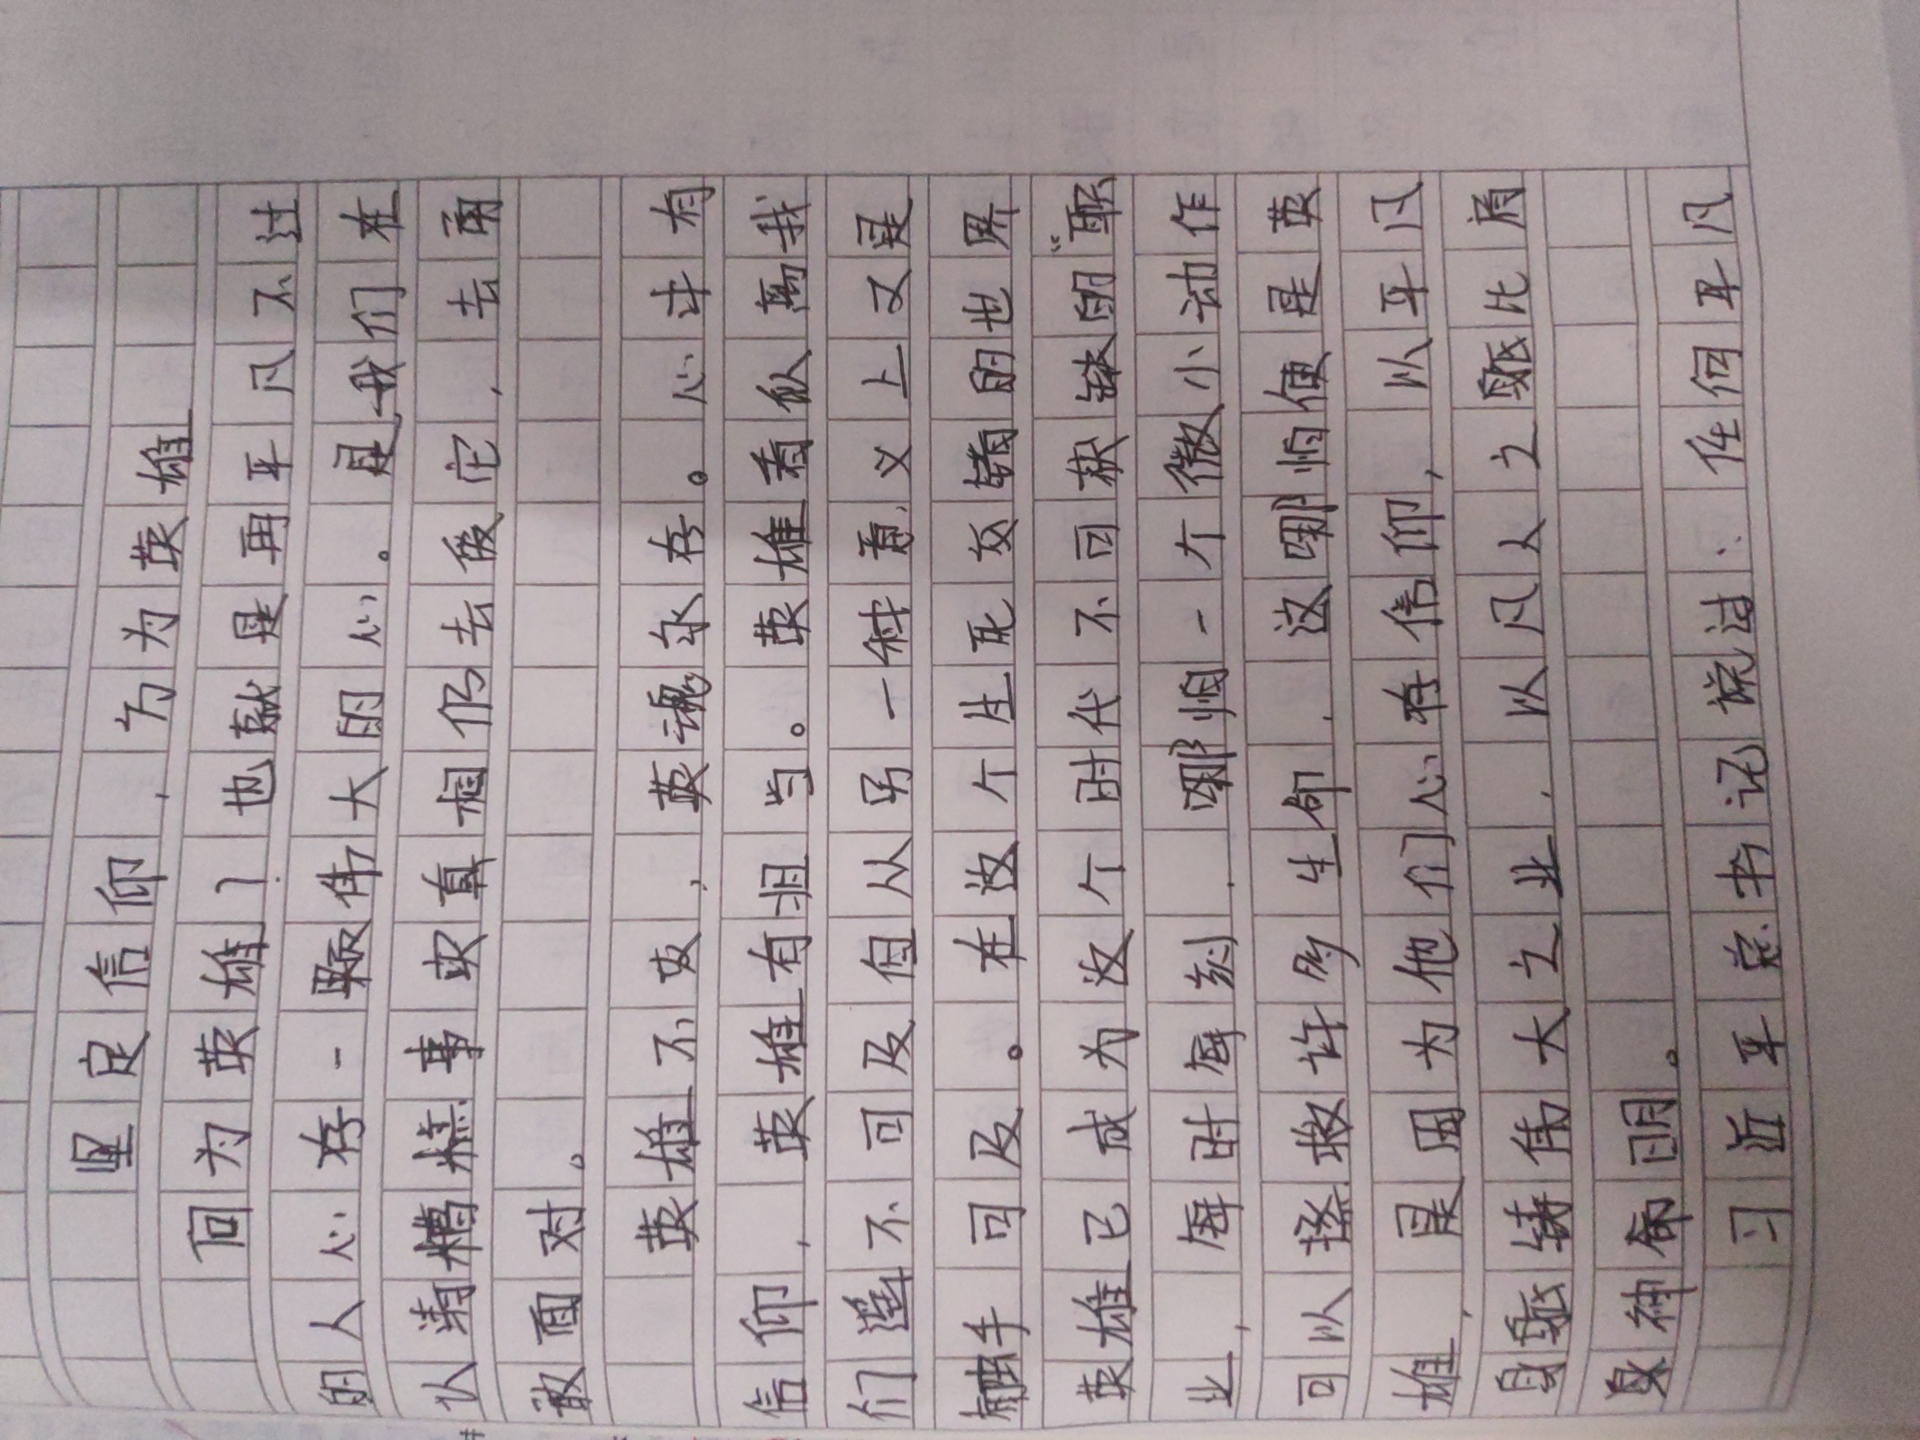 坚定信仰，方为英雄
何为英雄？也就是再平凡不过
的人心存一颗伟大的心。是我们在
认清糟糕事实真相仍去爱它，去勇
敢面对。
英雄不哀，英魂永存。心中有
信仰，英雄有归与。英雄看似离我
们遥不可及但从另一种意义上又是
触手可及。在这个生死交错的世界
英雄已成为这个时代不可获缺的“职
业，每时每刻，哪怕一个微小动作
可以拯救许多生命，这哪怕便是英
雄，是因为他们心存信仰，以平凡
身躯铸伟大之业，以凡人之躯比肩
神命明。
习近平总书记说过：任何平凡